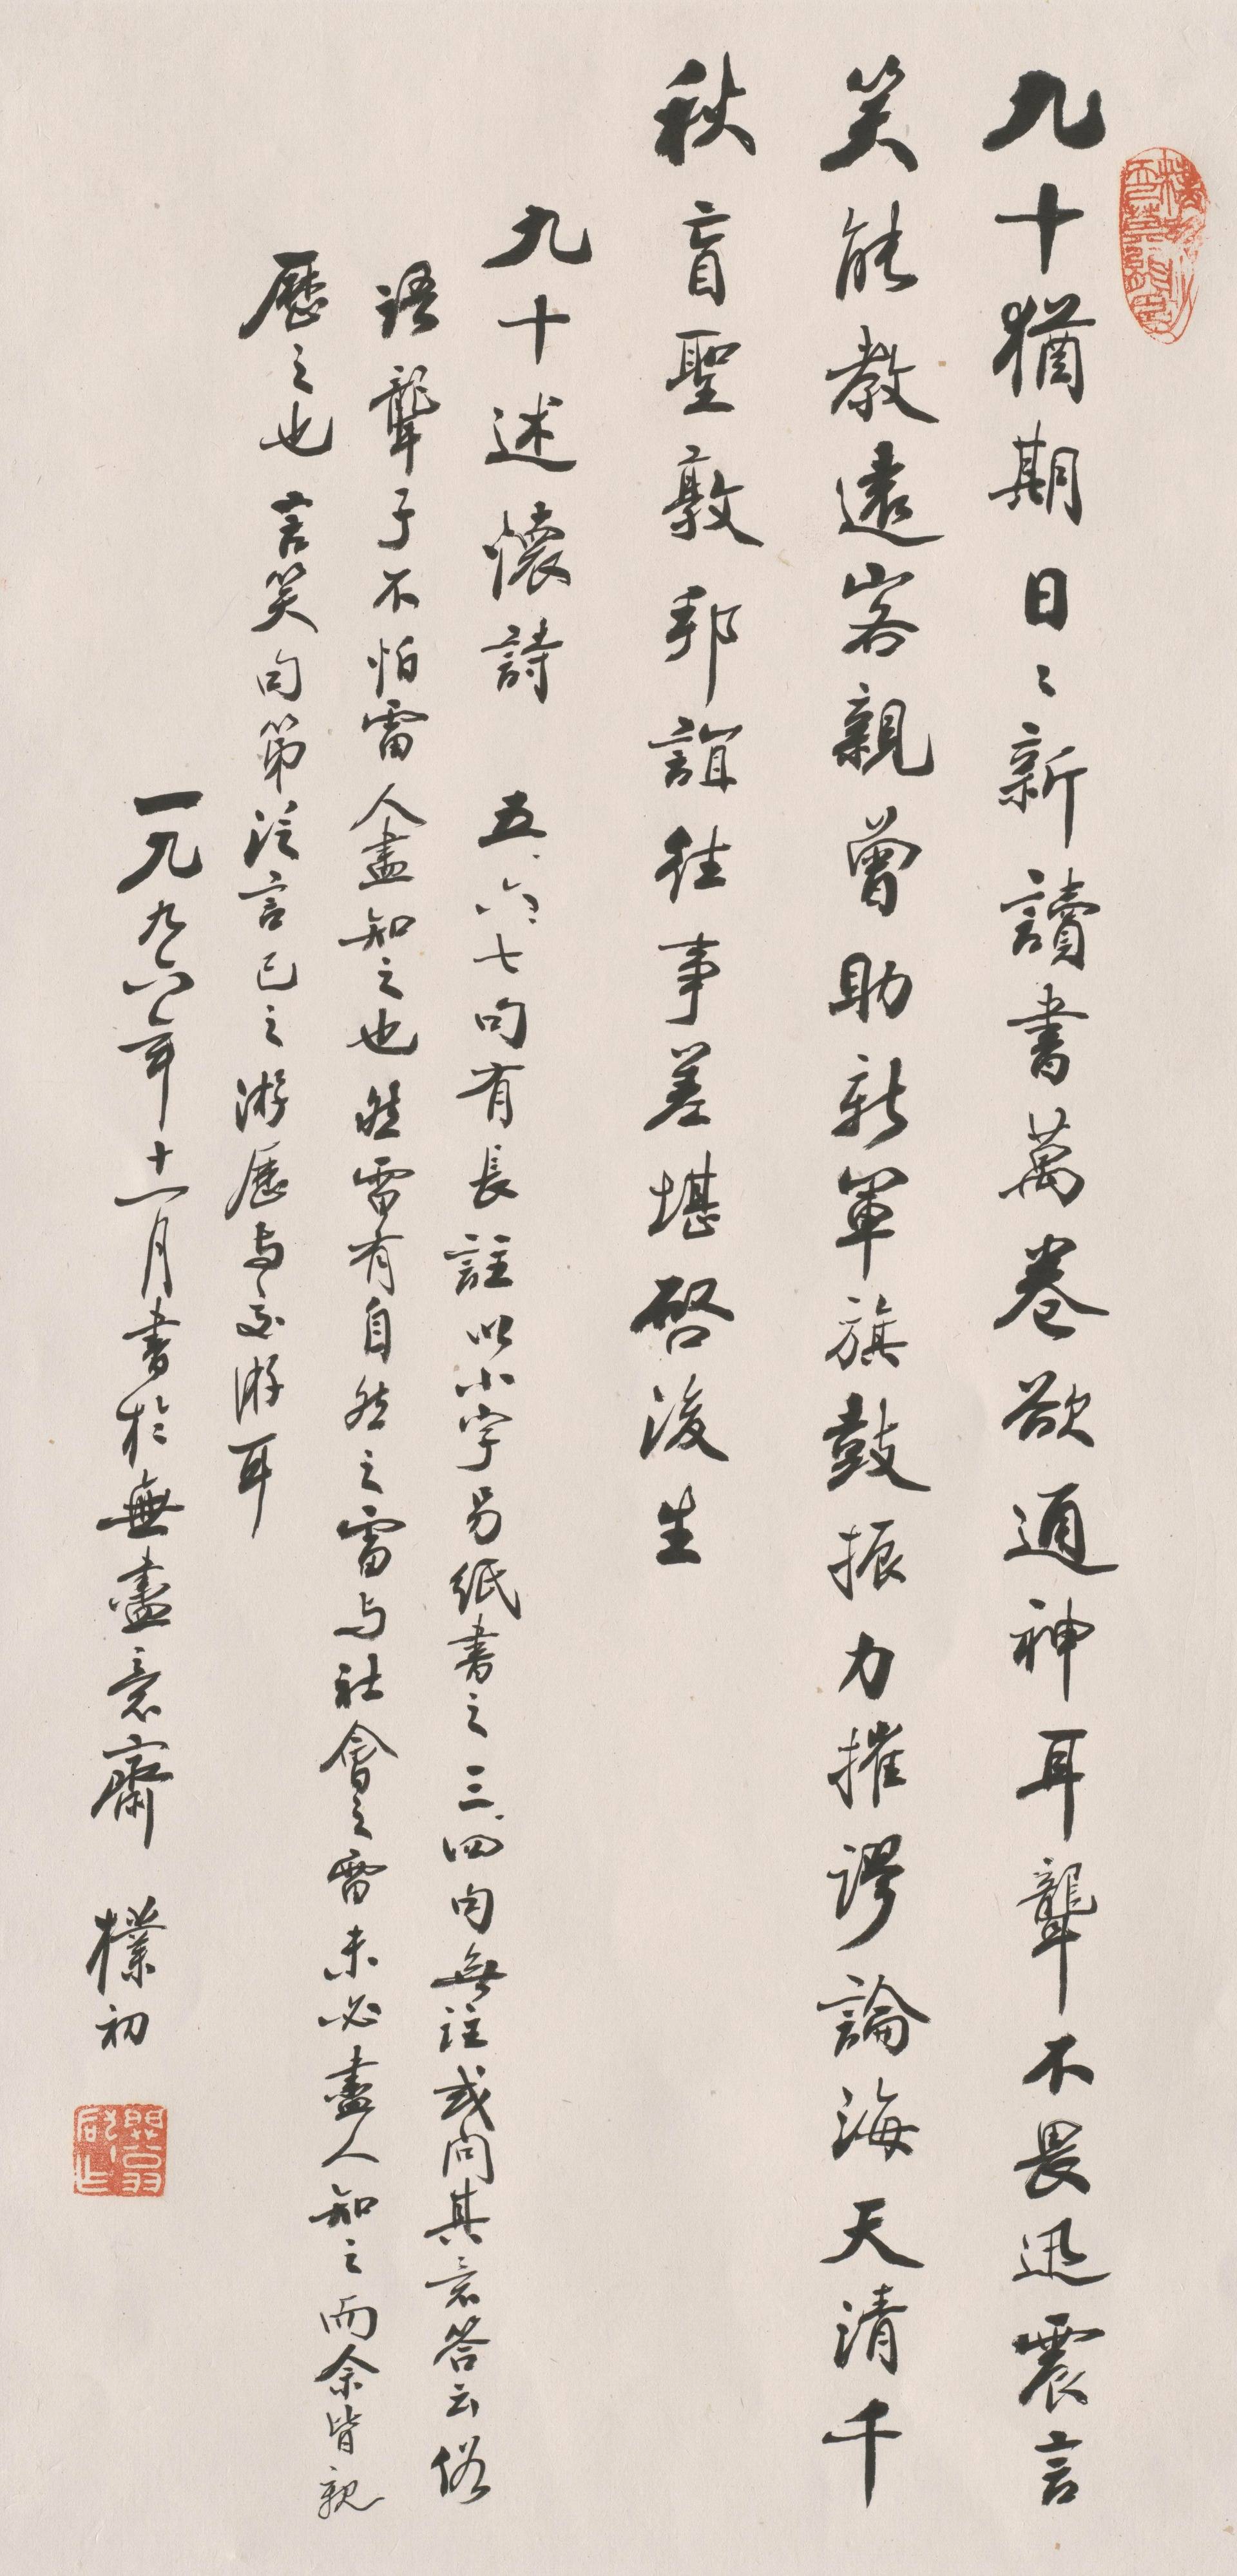 九十猶期日〻新讀書萬卷欲通神耳聾不畏迅震言
笑能教遠客親曾助新軍旗鼓振力摧謬論海天清千
秋盲聖敦邦誼往事差堪啓後生
九十述懷詩　五、六、七句有長註以小字另紙書之三、四句無註或問其意答云俗
語聾子不怕雷人盡知之也然雷有自然之雷与社會之雷未必盡人知之而余皆親
歷之也言笑句第泛言己之游歷与交游耳
一九九六年十一月書於無盡意齋　樸初